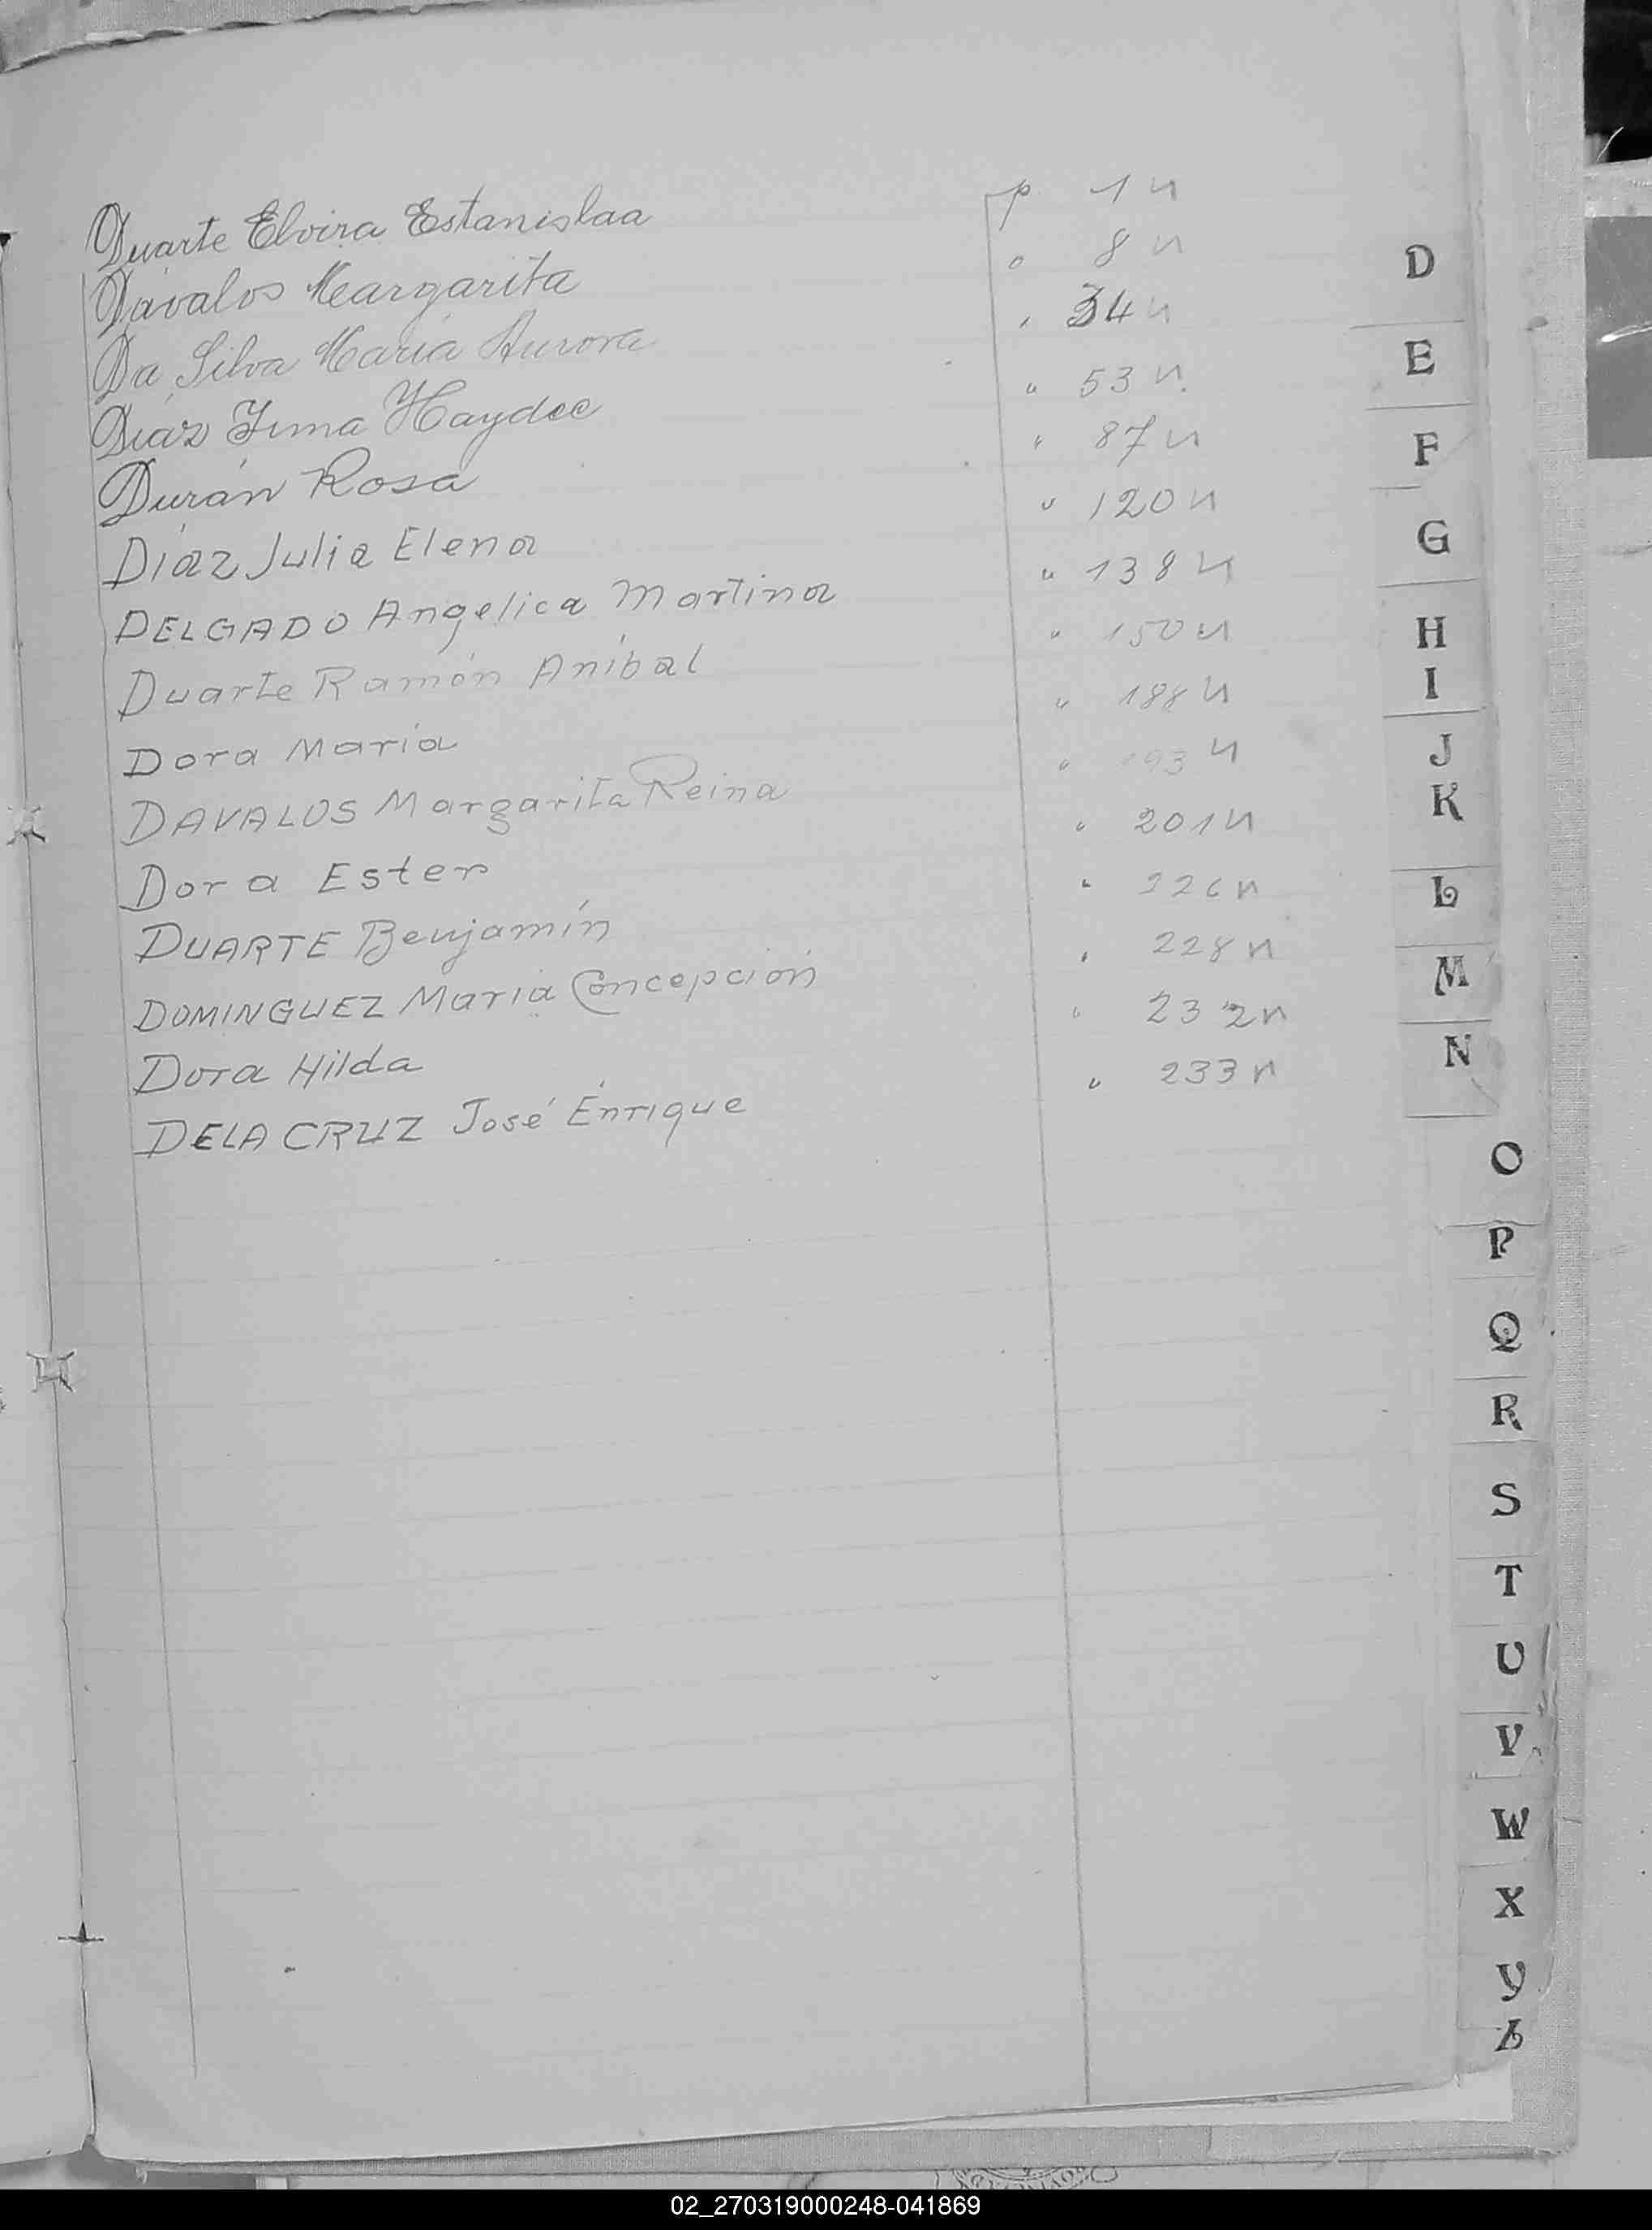 Duarte Elvira Estanislaa p 1 n
Dávalos Margarita " 8 n
Da Silva María Aurora " 34 n
Díaz Irma Haydee " 53 n
Durán Rosa " 87 n
Díaz Julia Elena " 120 n
DELGADO Angelica Martina " 138 n
Duarte Ramón Aníbal " 150 n
Dora María " 188 n
DAVALOS Margarita Reina " 193 n
Dora Ester " 201 n
DUARTE Benjamín " 226 n
DOMINGUEZ María Concepción " 228 n
Dora Hilda " 232 n
DELA CRUZ José Enrique " 233 n
D
E
F
G
H
I
J
K
L
M
N
O
P
Q
R
S
T
U
V
W
X
Y
Z
02_270319000248-041869